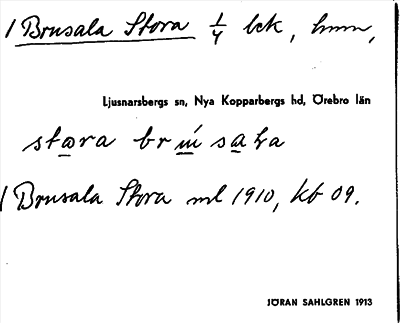 1 Brusala Stora 1/4 bck, hmn,
Ljusnarsbergs sn, Nya Kopparbergs hd, Örebro län
stora
1 Brusala Stora ml 1910, kb 09.
JÖRAN SAHLGREN 1913